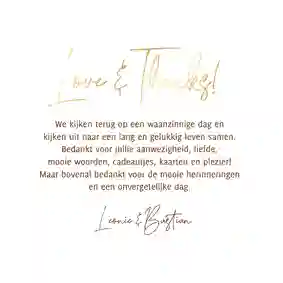 Love & Thanks!
We kijken terug op een waanzinnige dag en
kijken uit naar een lang en gelukkig leven samen.
Bedankt voor jullie aanwezigheid, liefde,
mooie woorden, cadeautjes, kaarten en plezier!
Maar bovenal bedankt voor de mooie herinneringen
en een onvergetelijke dag
Leonie & Bastian